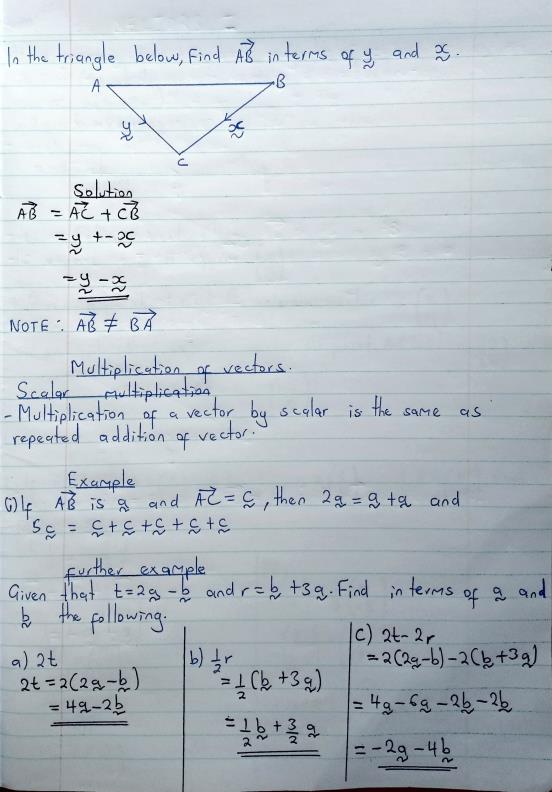 In the triangle below, Find AB⃗ in terms of y̰ and x̰.
A B
y̰ x̰
C
Solution
AB⃗ = AC⃗ + CB⃗
= y̰ + - x̰
= y̰ - x̰
NOTE: AB⃗ ≠ BA⃗
Multiplication of vectors.
Scalar multiplication
- Multiplication of a vector by scalar is the same as
repeated addition of vector.
Example
(i) If AB⃗ is a̰ and AC⃗ = c̰, then 2a̰ = a̰ + a̰ and
5c̰ = c̰ + c̰ + c̰ + c̰ + c̰
further example
Given that t = 2a̰ - b̰ and r = b̰ + 3a̰. Find in terms of a̰ and
b̰ the following.
a) 2t
2t = 2(2a̰ - b̰)
= 4a̰ - 2b̰
b) ½r
= ½(b̰ + 3a̰)
= ½b̰ + 3/2 a̰
C) 2t - 2r
= 2(2a̰ - b) - 2(b̰ + 3a̰)
= 4a̰ - 6a̰ - 2b̰ - 2b̰
= -2a̰ - 4b̰